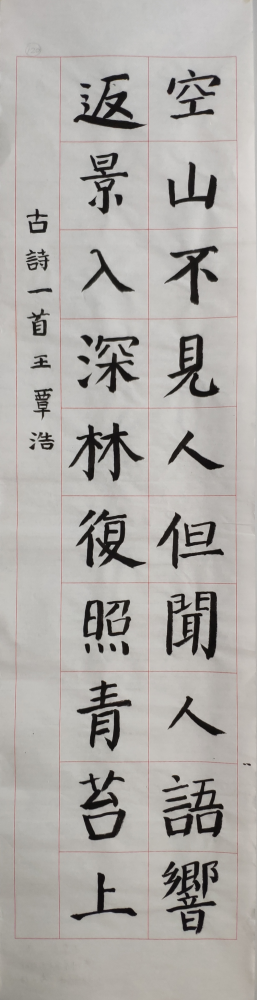 空山不見人但聞人語響
返景入深林復照青苔上
古詩一首王覃浩